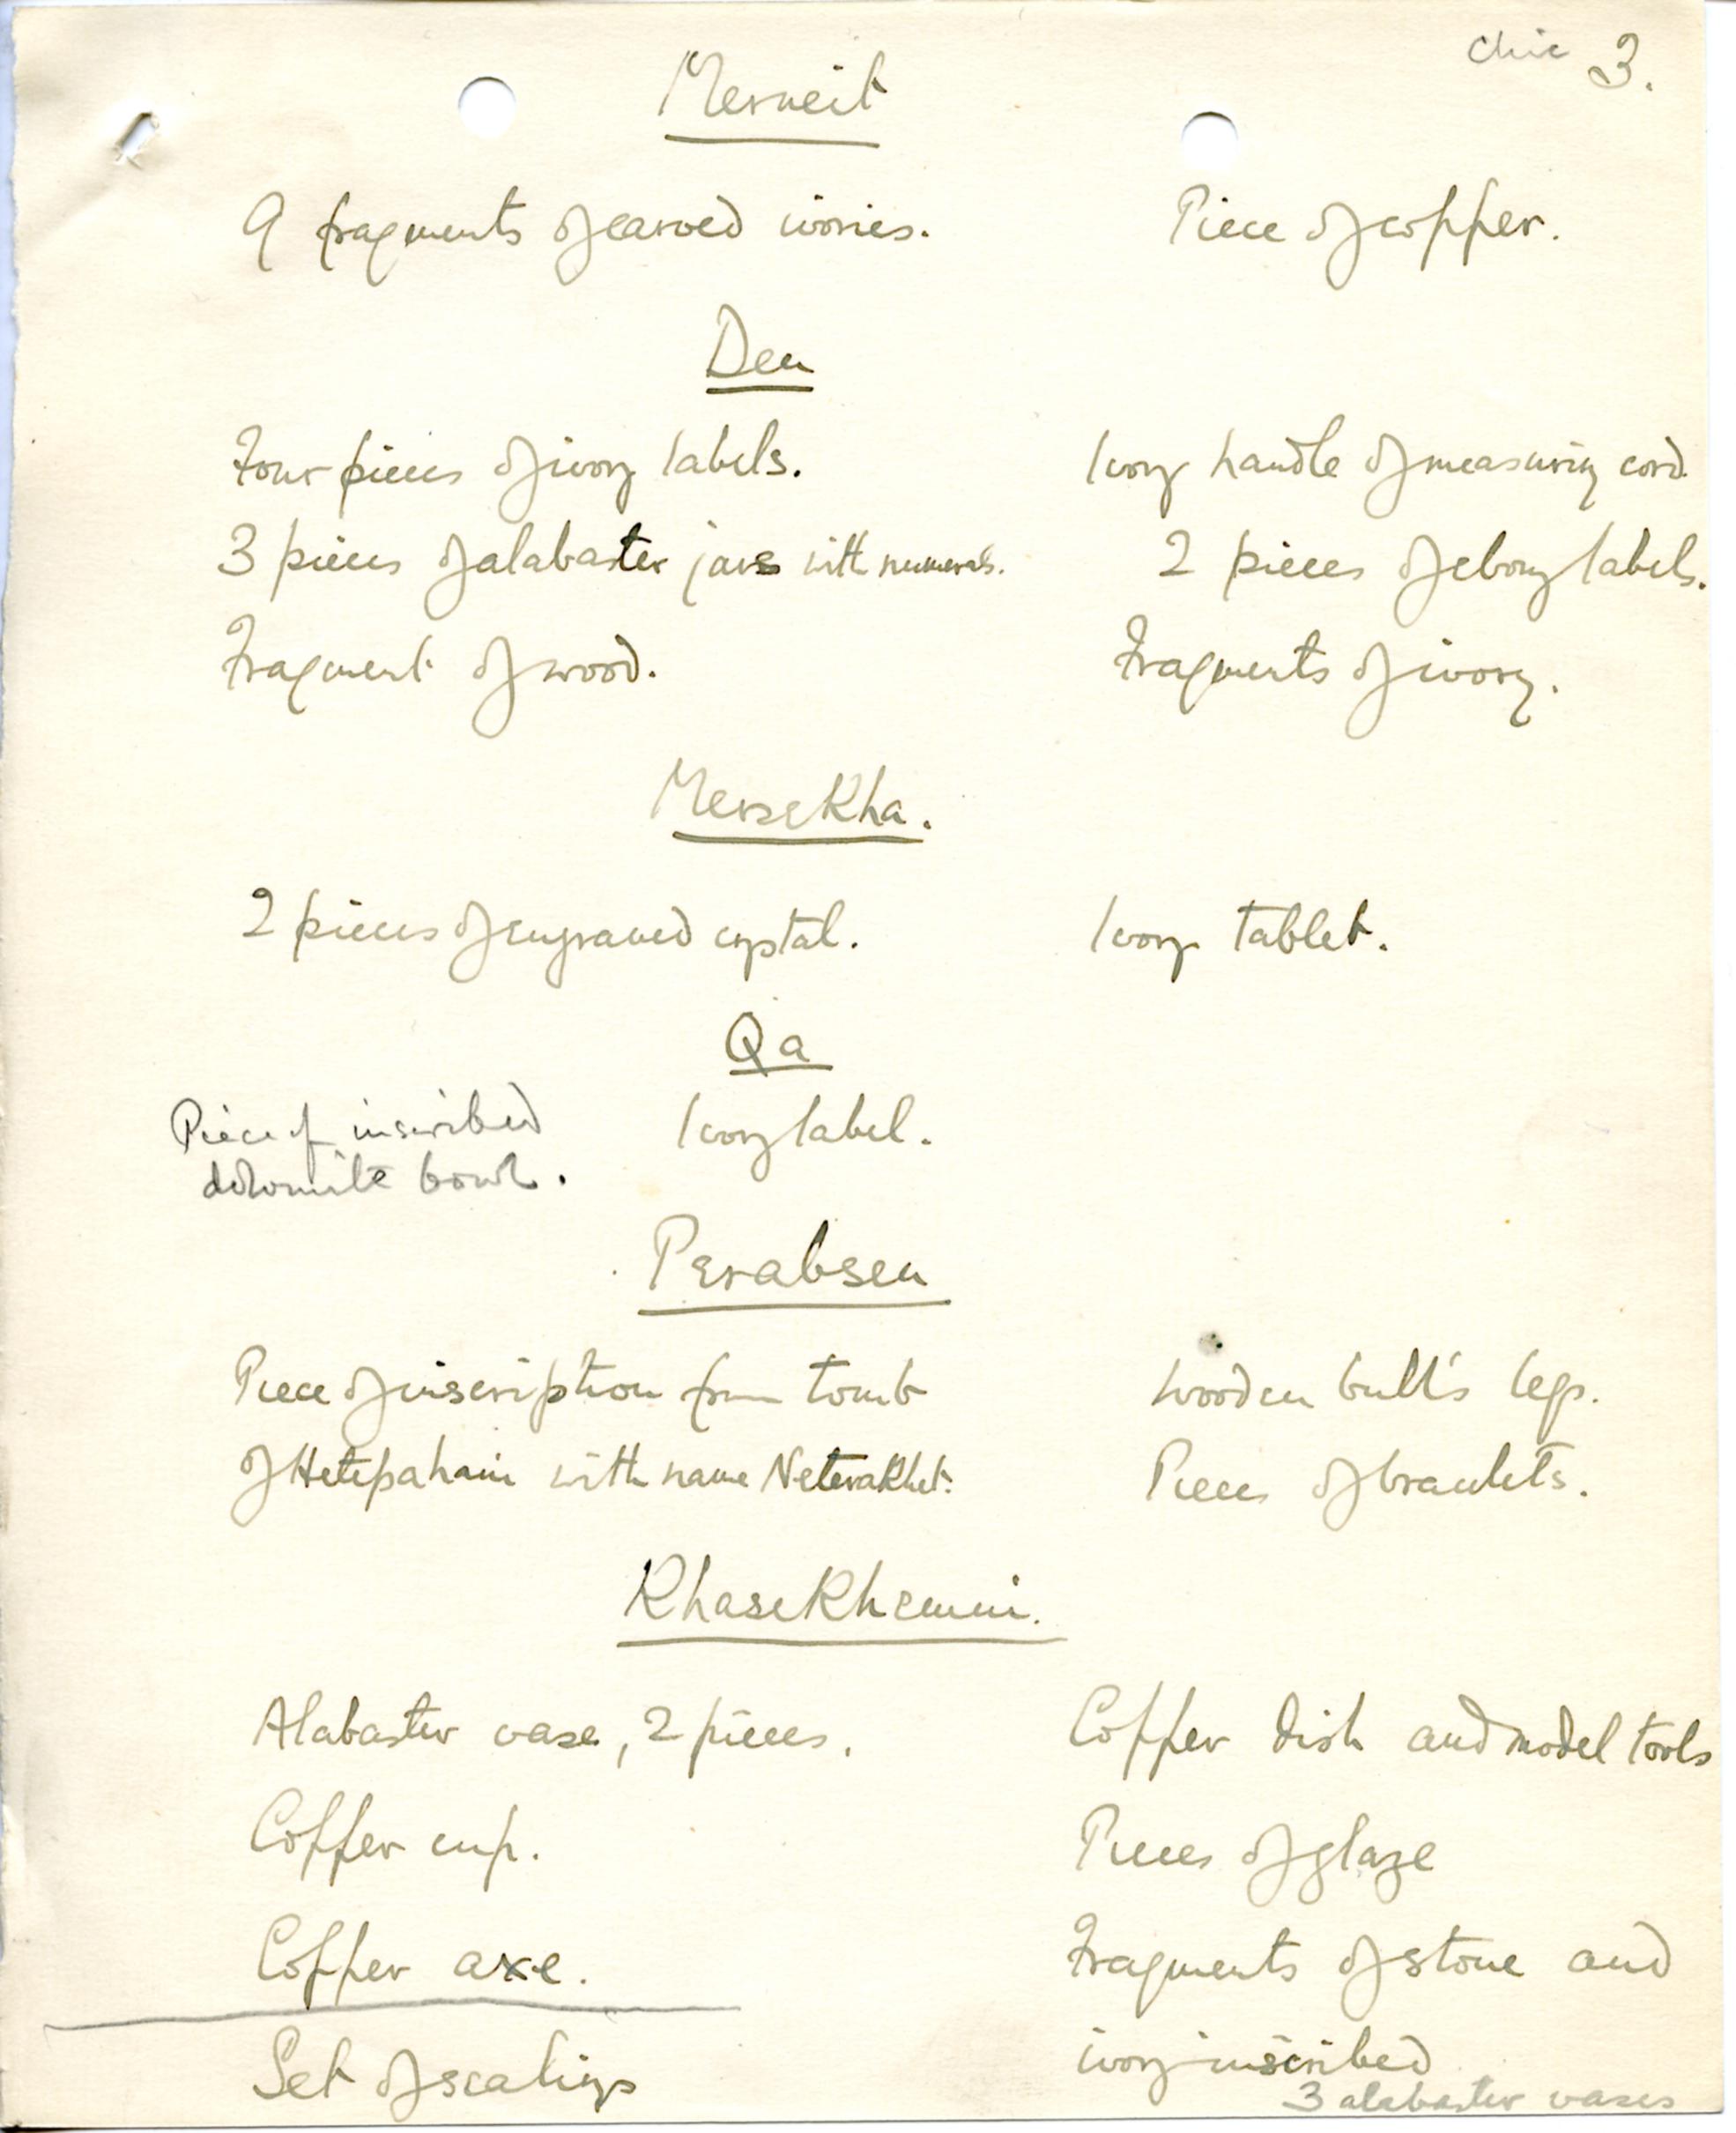 Chic 3.
Merneit
9 fragments of carved ivories. Piece of copper.
Den
Four pieces of ivory labels. Ivory handle of measuring cord.
3 pieces of alabaster jars with numerals. 2 pieces of ebony labels.
Fragment of wood. Fragments of ivory.
Mersekha.
2 pieces of engraved crystal. Ivory tablet.
Qa
Piece of inscribed Ivory label.
dolomite bowl.
Perabsen
Piece of inscription from tomb wooden bull's legs.
of Hetepahani with name Neterakhet. Pieces of bracelets.
Khasekhemui.
Alabaster vase, 2 pieces. Copper dish and model tools
Copper cup. Pieces of glaze
Copper axe. Fragments of stone and
Set of sealings ivory inscribed
3 alabaster vases